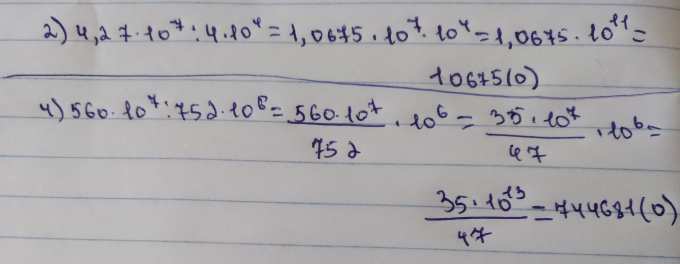 2) 4,27·10⁷:4·10⁴=1,0675·10⁷·10⁴=1,0675·10¹¹=
10675(0)
4) 560·10⁷:752·10⁶=560·10⁷/752·10⁶=35·10⁷/47·10⁶=
35·10¹³/47=744681(0)